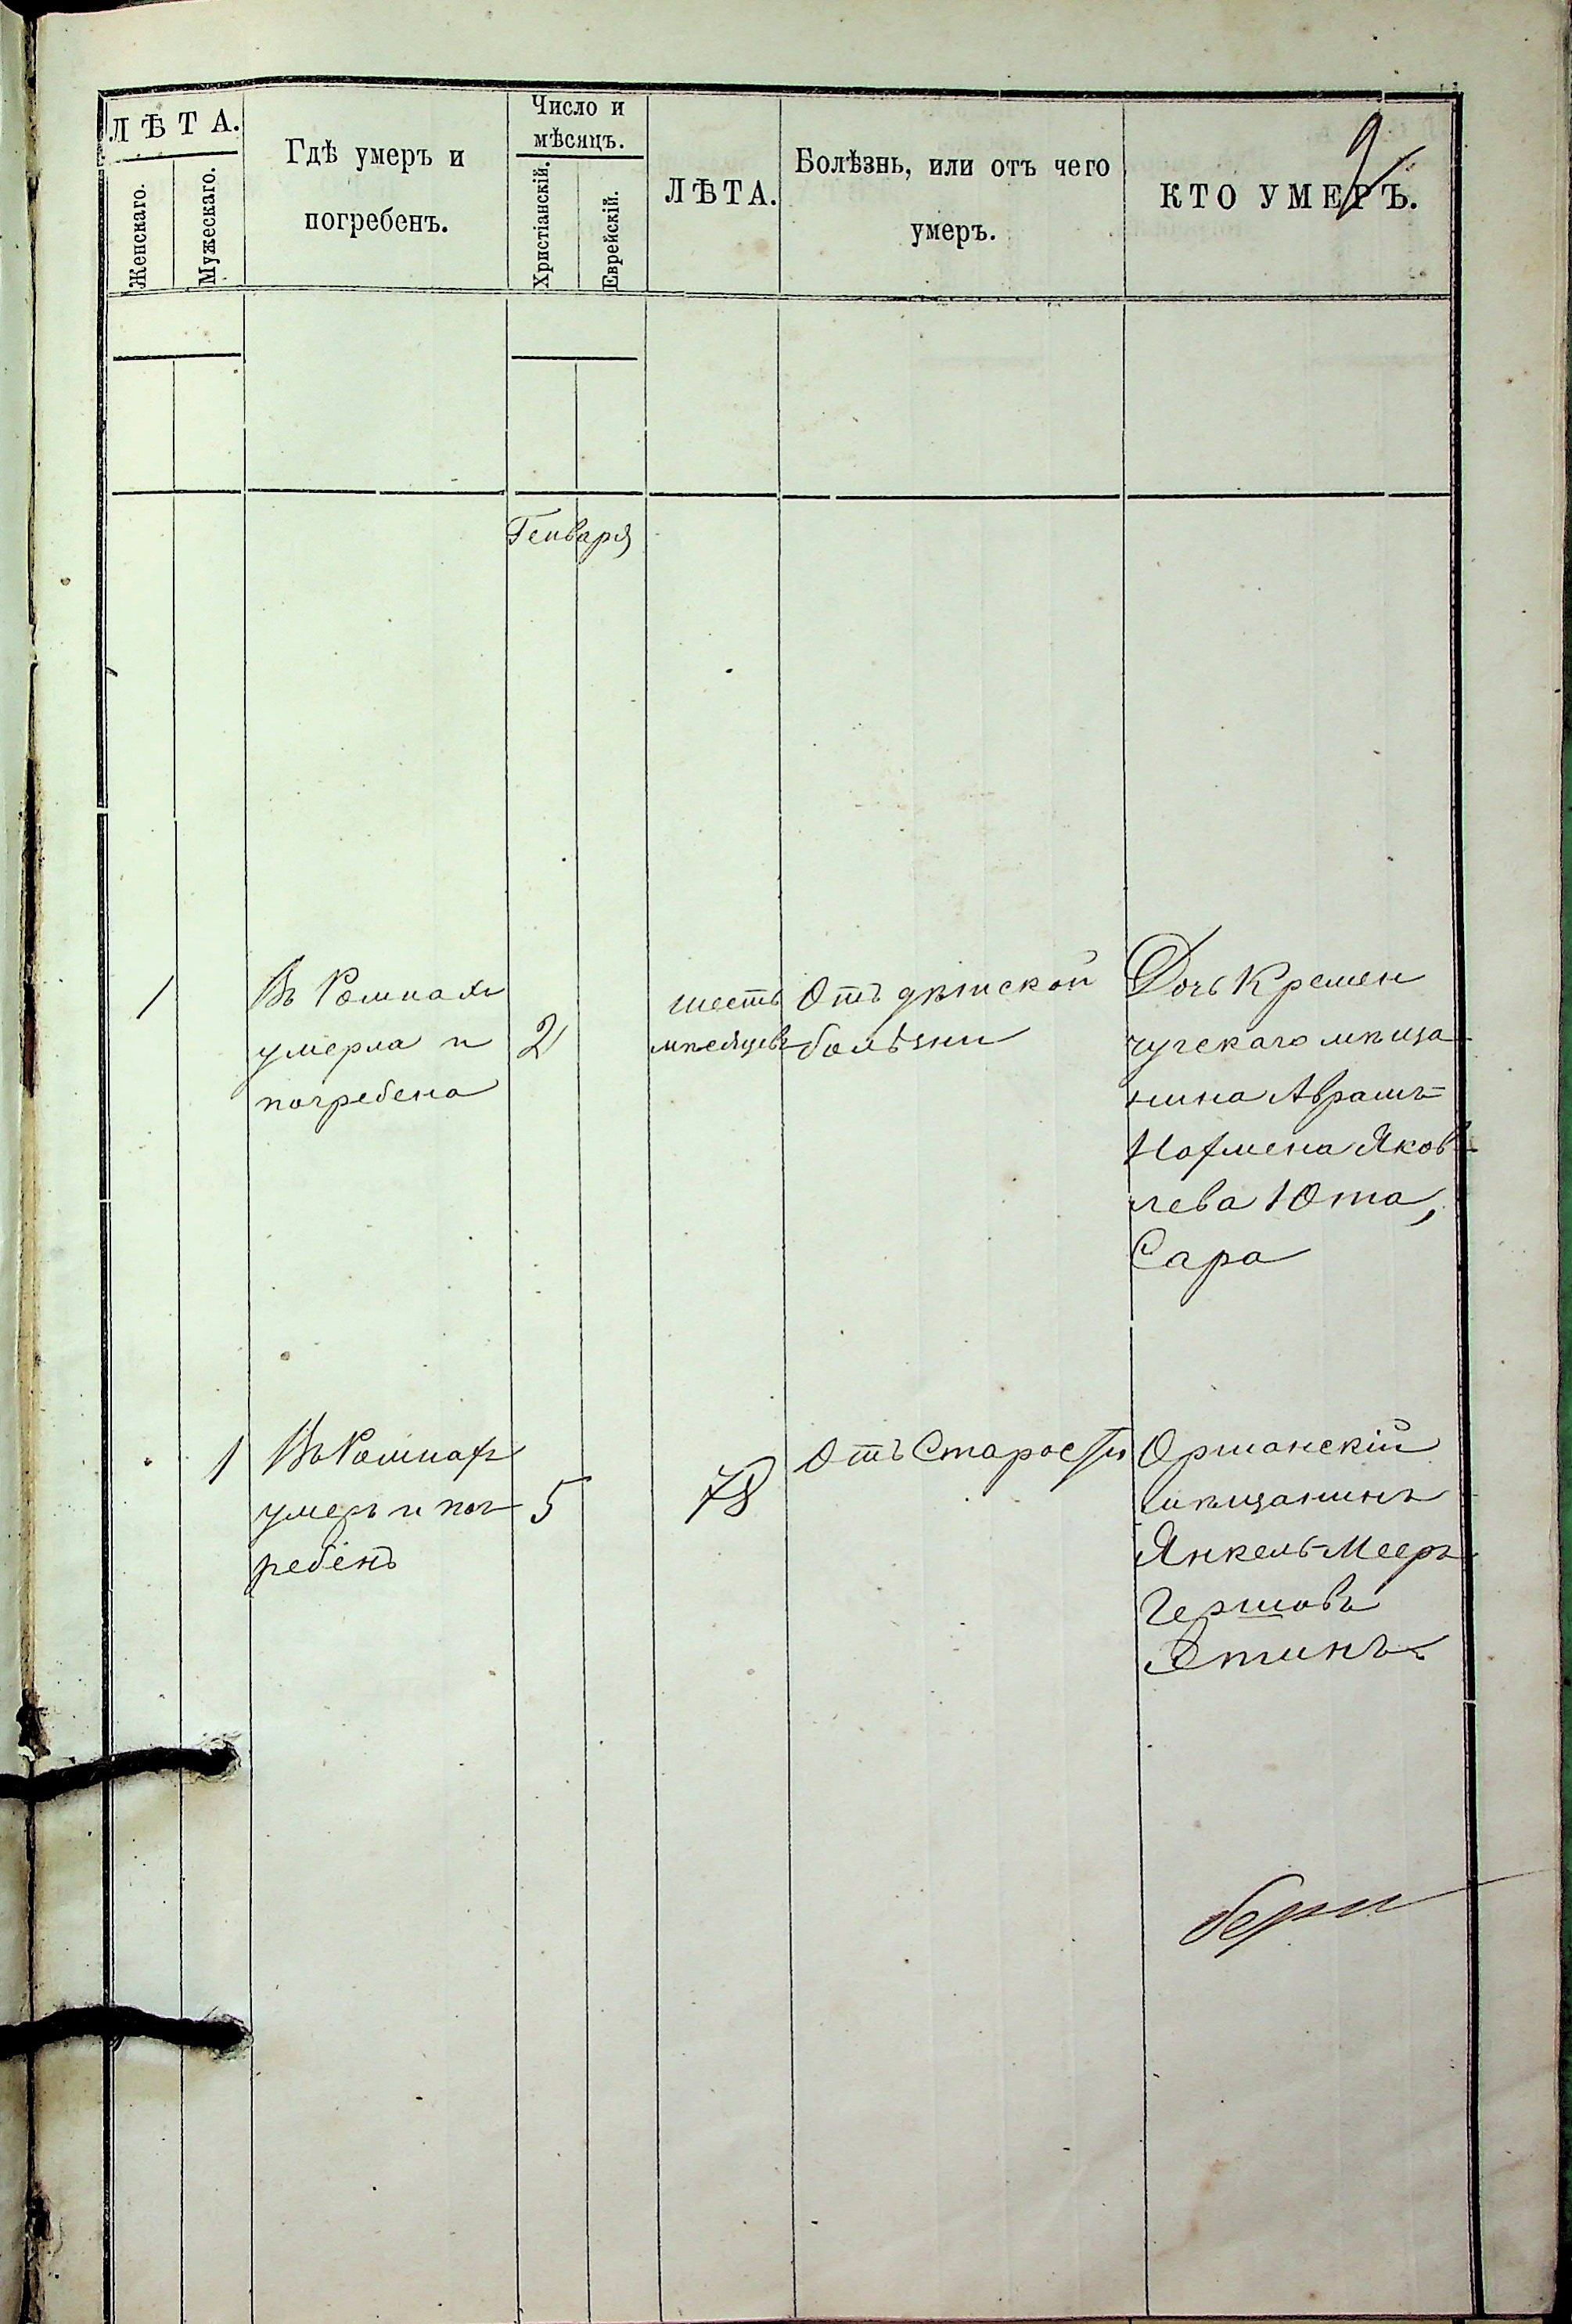 9
ЛѢТА.
Женскаго.
Мужескаго.
Гдѣ умеръ и
погребенъ.
Число и
мѣсяцъ.
Христіанскій.
Еврейскій.
ЛѢТА.
Болѣзнь, или отъ чего
умеръ.
КТО УМЕРЪ.
Генваря
1
Въ Ромнахъ
умерла и
погребена
2
шесть
мѣсяцевъ
Отъ дѣтской
болѣзни
Дочь Кремен
чугскаго мѣща
нина Аврамъ=
Нахмена Яков
лева Юта,
Сара
1
Въ Ромнахъ
умеръ и пог
ребенъ
5
78
Отъ Старости
Оршанскій
мѣщанинъ
Янкель-Мееръ
Гершовъ
Этинъ